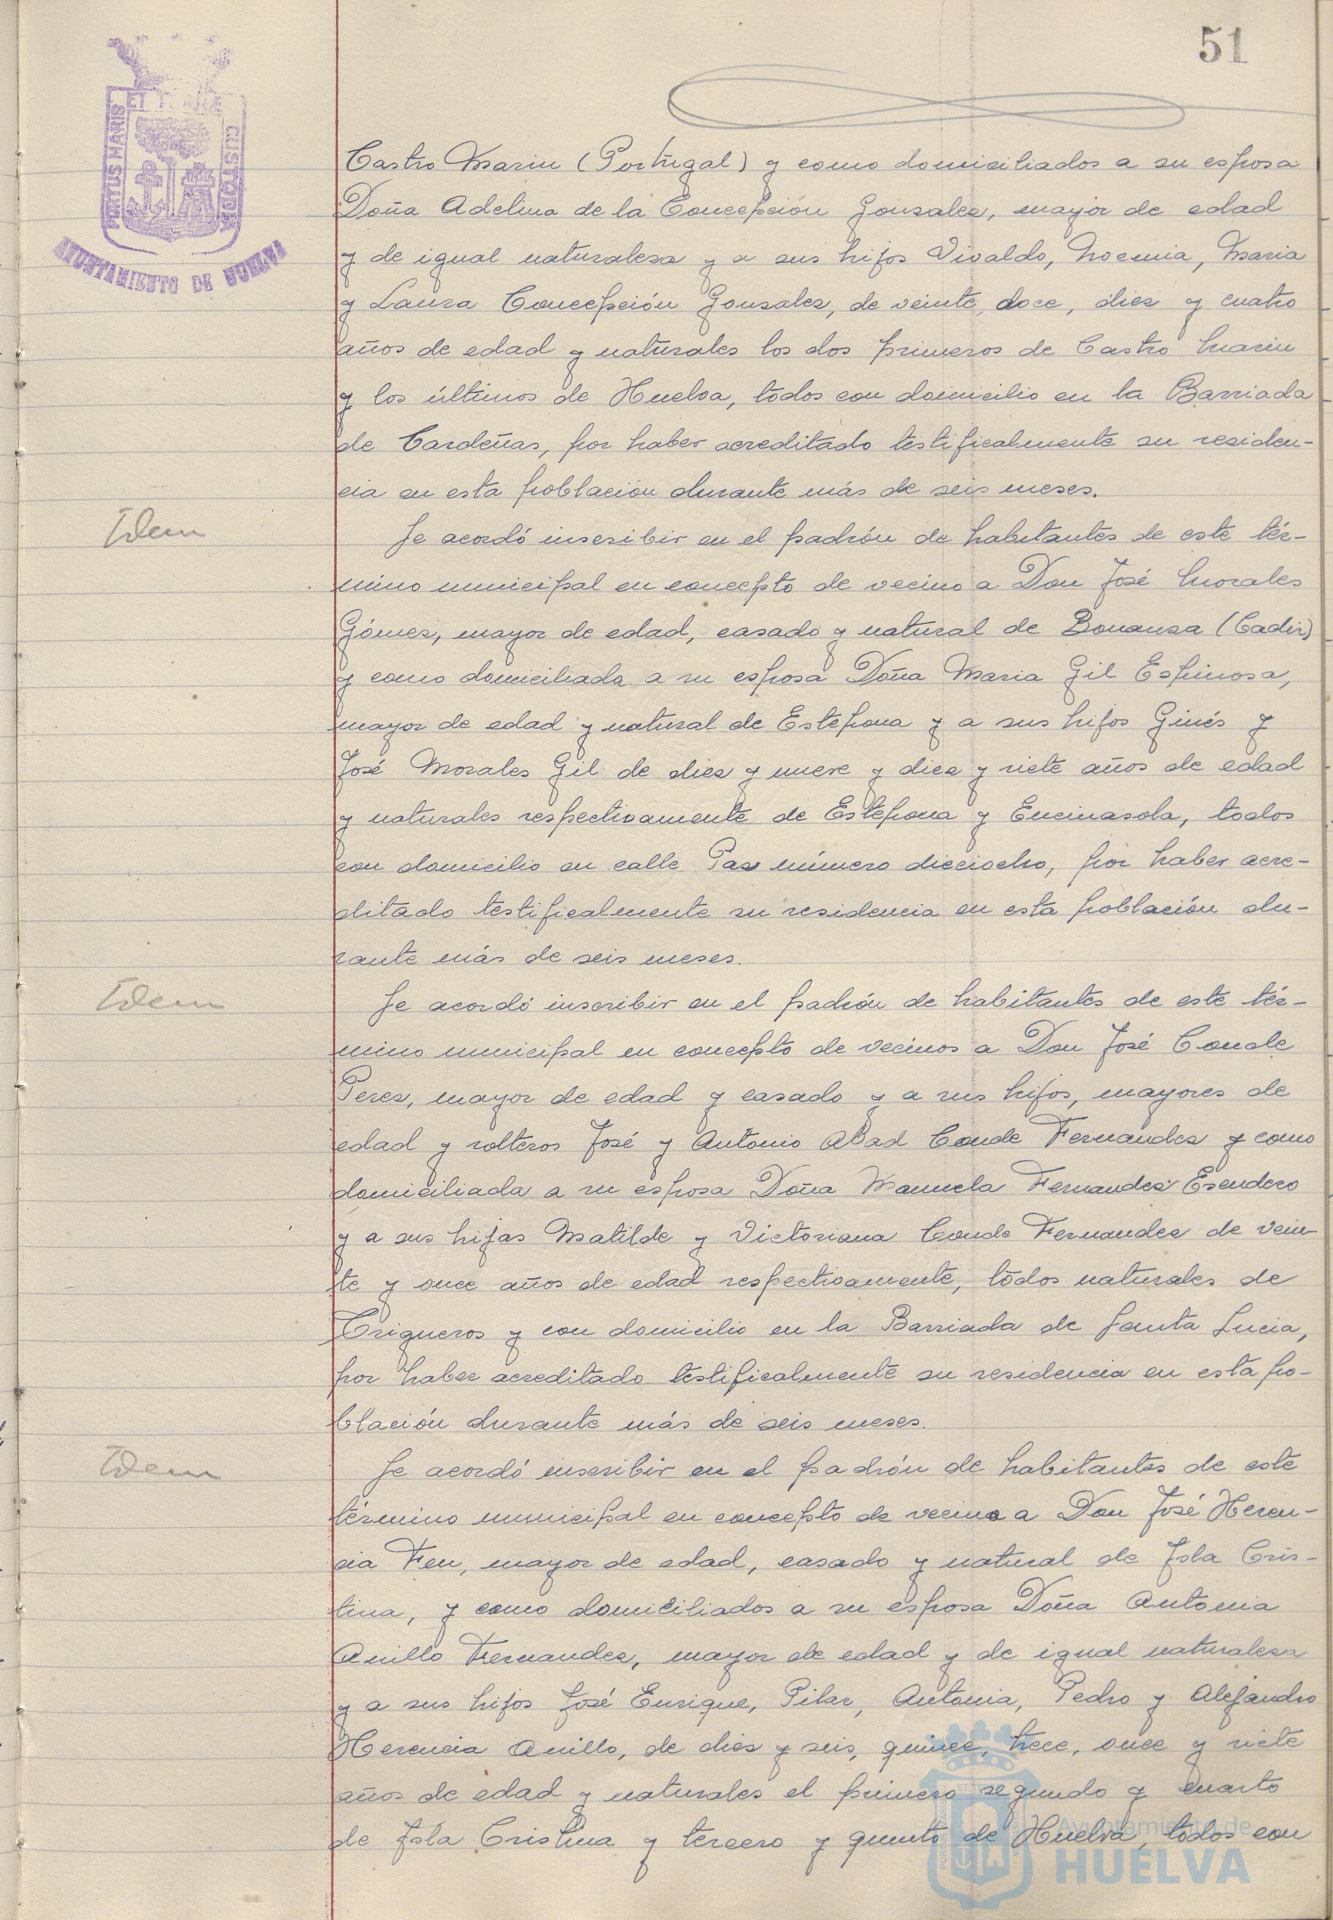 51
PORTUS MARIS
ET TERRE
CUSTODIA
AYUNTAMIENTO DE HUELVA
Castro Marin (Portugal) y como domiciliados a su esposa
Doña Adelina de la Concepción Gonzalez, mayor de edad
y de igual naturaleza y a sus hijos Vivaldo, Noemia, Maria
y Laura Concepción Gonzalez, de veinte, doce, diez y cuatro
años de edad y naturales los dos primeros de Castro Marin
y los últimos de Huelva, todos con domicilio en la Barriada
de Cardeñas, por haber acreditado testificalmente su residen-
cia en esta población durante más de seis meses.
Idem
Se acordó inscribir en el padrón de habitantes de este tér-
mino municipal en concepto de vecino a Don José Morales
Gómez, mayor de edad, casado y natural de Bonanza (Cadiz)
y como domiciliada a su esposa Doña Maria Gil Espinosa,
mayor de edad y natural de Estepona y a sus hijos Ginés y
José Morales Gil de diez y nueve y diez y siete años de edad
y naturales respectivamente de Estepona y Encinasola, todos
con domicilio en calle Paz número dieciocho, por haber acre-
ditado testificalmente su residencia en esta población du-
rante más de seis meses.
Idem
Se acordó inscribir en el padrón de habitantes de este tér-
mino municipal en concepto de vecinos a Don José Conde
Perez, mayor de edad y casado y a sus hijos, mayores de
edad y solteros José y Antonio Abad Conde Fernandez y como
domiciliada a su esposa Doña Manuela Fernandez Escudero
y a sus hijas Matilde y Victoriana Conde Fernandez de vein-
te y once años de edad respectivamente, todos naturales de
Trigueros y con domicilio en la Barriada de Santa Lucia,
por haber acreditado testificalmente su residencia en esta po-
blación durante más de seis meses.
Idem
Se acordó inscribir en el padrón de habitantes de este
término municipal en concepto de vecino a Don José Heren-
cia Feu, mayor de edad, casado y natural de Isla Cris-
tina, y como domiciliados a su esposa Doña Antonia
Anillo Fernandez, mayor de edad y de igual naturaleza
y a sus hijos José Enrique, Pilar, Antonia, Pedro y Alejandro
Herencia Anillo, de diez y seis, quince, trece, once y siete
años de edad y naturales el primero segundo y cuarto
de Isla Cristina y tercero y quinto de Huelva, todos con
Ayuntamiento de
HUELVA